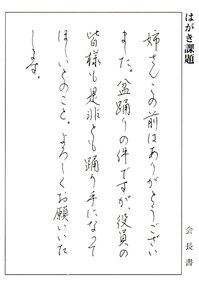 はがき課題
会長書
姉さんこの前はありがとうござい
ました。盆踊りの件ですが、役員の
皆様も是非とも踊り手になって
ほしいとのこと。よろしくお願いいた
します。